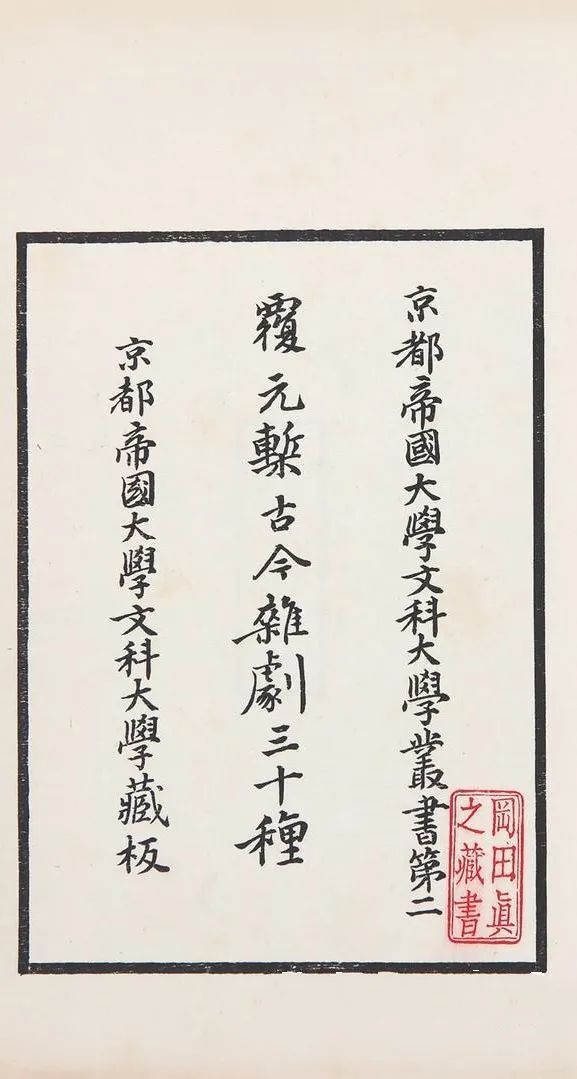 京都帝國大學文科大學叢書第二
覆元槧古今雜劇三十種
京都帝國大學文科大學藏板
岡田眞
之藏書